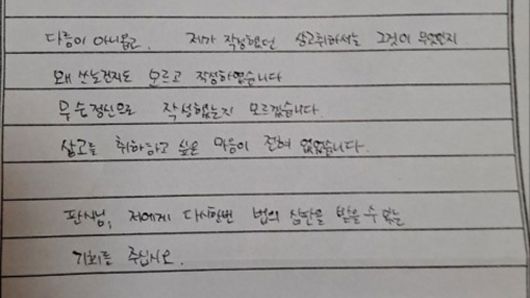 다름이 아니옵고, 제가 작성했던 상고취하서는 그것이 무엇인지
왜 쓰는건지도 모르고 작성하였습니다
무슨정신으로 작성했는지 모르겠습니다.
상고를 취하하고 싶은 마음이 전혀 없었습니다.
판사님, 저에게 다시한번 법의 심판을 받을 수 있는
기회를 주십시오.